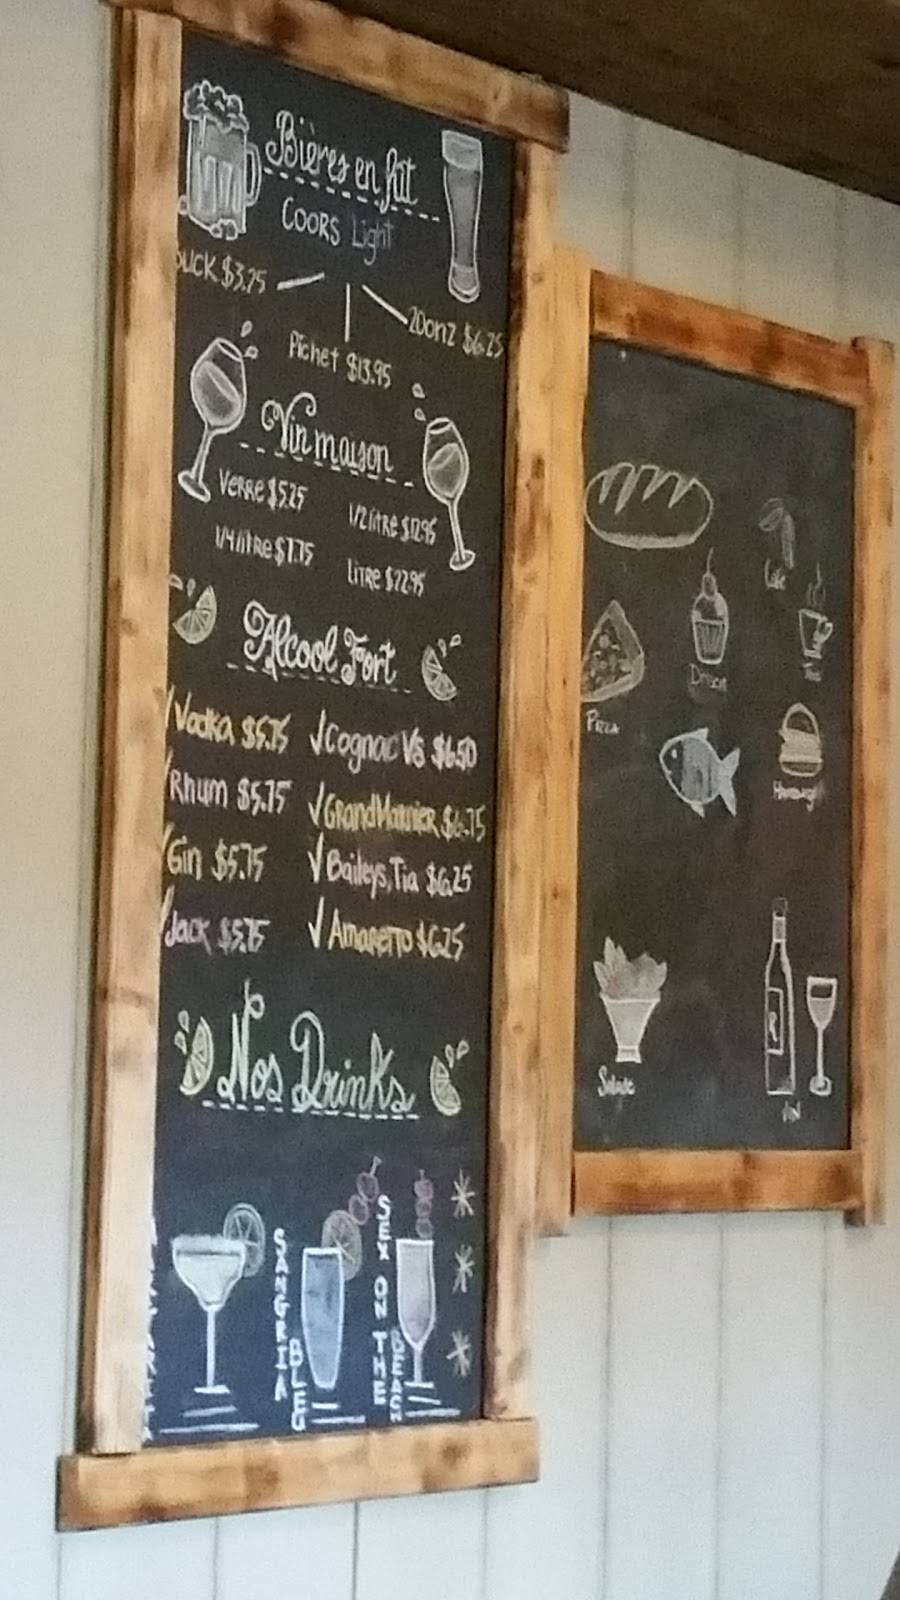 Bières en fût
COORS Light
BUCK $3.25
20onz $6.25
Pichet $13.95
Vin maison
Verre $5.25
1/2 litre $12.95
1/4 litre $7.75
Litre $22.95
Alcool Fort
√Vodka $5.75
√Cognac VS $6.50
√Rhum $5.75
√GrandMarnier $6.75
√Gin $5.75
√Baileys, Tia $6.25
√Jack $5.75
√Amaretto $6.25
Nos Drinks
SANGRIA
BLEU
SEX ON THE
BEACH
Café
Dessert
Thé
Pizza
Salade
R
VIN